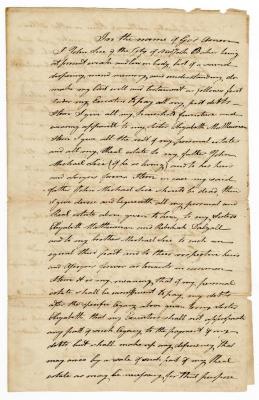 In the name of God Amen
I John Lice of the City of New York Baker being
at present weak and low in body, but of a sound
disposing mind memory, and understanding, do
make my last will and testament as follows first
I order my Executors to pay all my just debts
Item I give all my household furniture and
wearing apparel to my sister Elizabeth
Item I give all the rest of my personal estate
and all my Real estate to my father John
Michael Lice (if he is living) and to his heirs
and Assigns forever Item in case my said
father John Michael Lice should be dead then
I give devise and bequeath all my personal and
Real estate above given to him, to my sisters
Elizabeth and Rebekah
and to my brother Michael Lice to each an
equal third part and to their respective heirs
and Assigns forever as tenants in common
Item it is my meaning, that if my personal
estate shall be insufficient to pay my debts
after the specific legacy above given to my sister
Elizabeth that my Executors shall not appropriate
any part of such legacy to the payment of my
debts but shall make up any deficiency, that
may arise by a sale of such part of my Real
estate as may be necessary for that purpose